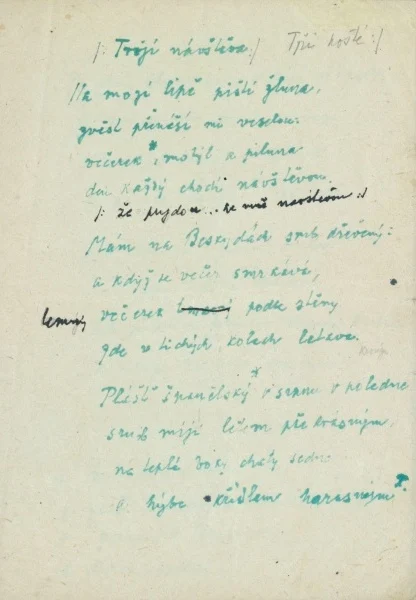 /: Trojí návštěva :/ Tři hosté :/
Na mogí lípě piští žluna,
zvěst přináší mi veselou:
večerek*, motýl a piluna
den každý chodí návštěvou.
/: že přijdou .. ke mně návštěvou :/
Mám na Beskydách srub dřevěný:
a když se večer smrkává,
lemuj večerek podle stěny
jde v tichých kolech létává.
Plášť španělský * v srpnu v poledne
srub míjí letem překrásným,
na teplé boky chaty sedne
a hýbe křídlem harasným